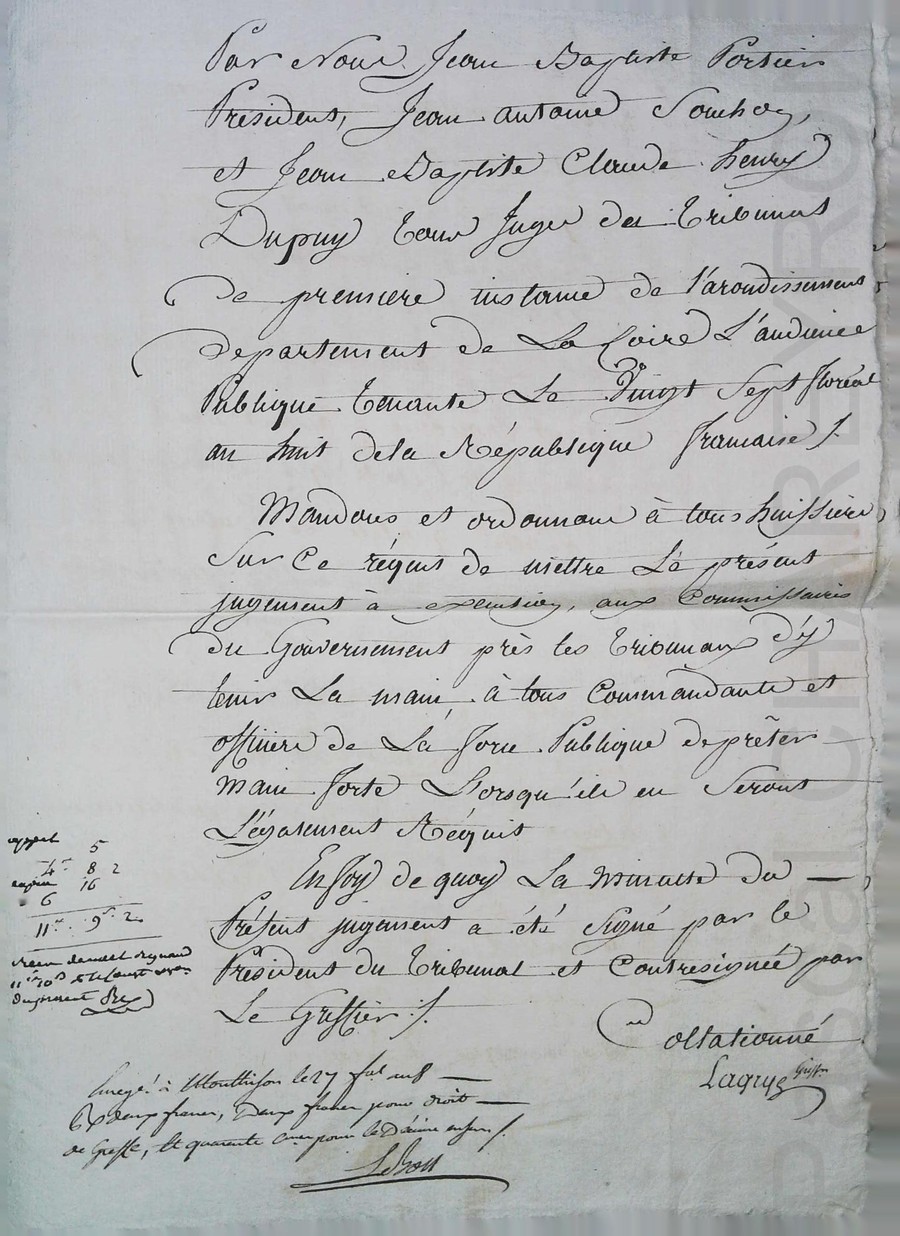 Par Nous Jean Baptiste Portier
Président, Jean antoine Souchon,
et Jean Baptiste Claude henry
Dupuy tous Juges du Tribunal
de premiere instance de l'arondissement
departement de La Loire L'audience
Publique tenante Le Vingt Sept floréal
an huit dela République francaise ./.
Mandons et ordonnons à tous huissiers,
Sur Ce réquis de mettre Le présent
jugement à execution, aux Commissaires
du Gouvernement près les tribunaux d'y
tenir La main, à tous Commandants et
officiers de La force Publique deprêter
main forte Lorsqu'ils en Seront
Légalement Réquis
En foy de quoy La minutte du
Présent jugement a été Signé par le
Président du Tribunal et Contresignée par
Le Greffier ./.
Collationné
Lagrye Greff.er
appel 5
4 8 2
6 16
11 9 2
Enregé à Montbrison le 27 fal an 8
deux francs, Deux francs pour droit
de Greffe, et quarante cmes pour le Décime
LeBon
Pascal CHAREYRON